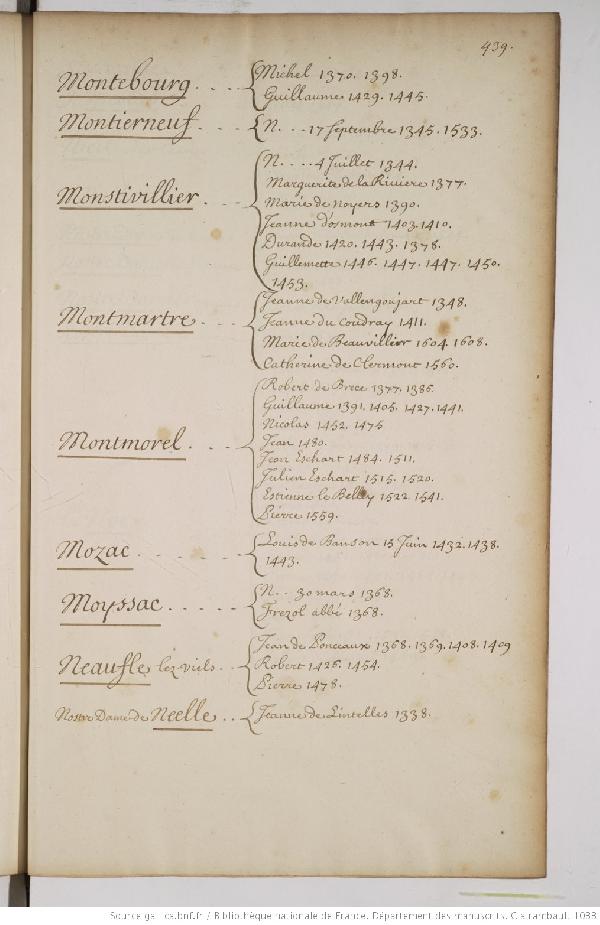 439.
Montebourg. . . .
Michel 1370. 1398.
Guillaume 1429. 1445.
Montierneuf. . . .
N. . . . 17 Septembre 1345. 1533.
Monstivillier. . .
N. . . . . 4 Juillet 1344.
Marguerite de la Riviere 1377.
Marie de Noyers 1390.
Jeanne d'osmont 1403. 1410.
Durande 1420. 1443. 1378.
Guillemette 1446. 1447. 1447. 1450.
1453.
Montmartre. . . .
Jeanne de Vallengoujart 1348.
Jeanne du Coudray 1411.
Marie de Beauvillier 1604. 1608.
Catherine de Clermont 1560.
Montmorel. . . .
Robert de Brece 1377. 1386.
Guillaume 1391. 1405. 1427. 1441.
Nicolas 1452. 1475
Jean 1480.
Jean Eschart 1484. 1511.
Julien Eschart 1515. 1520.
Estienne le Belley 1522. 1541.
Pierre 1559.
Mozac. . . . . .
Louis de Banson 15 Juin 1432. 1438.
1443.
Moyssac. . . . . .
N. . . 30 mars 1368.
Frezol abbé 1368.
Neaufle lez viels. . .
Jean de Ponceaux 1368. 1369. 1408. 1409
Robert 1426. 1454.
Pierre 1478.
Nostre Dame de Neelle . .
Jeanne de Lintelles 1338.
Source gallica.bnf.fr / Bibliothèque nationale de France. Département des manuscrits. Clairambault 1083